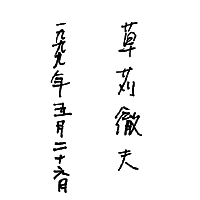 草刈徹夫
一九九九年五月二十六日